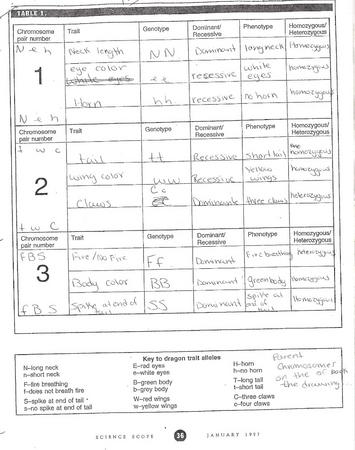 TABLE 1.
Chromosome pair number Trait Genotype Dominant/Recessive Phenotype Homozygous/Heterozygous
N e h Neck length NN Dominant long neck Homozygous
1 eye color ee recessive white eyes homozygous
white eyes
Horn hh recessive no horn homozygous
N e h
Chromosome pair number Trait Genotype Dominant/Recessive Phenotype Homozygous/Heterozygous
t w c tail tt Recessive short tail homozygous
2 wing color ww Recessive Yellow wings homozygous
Claws Cc Dominant three claws heterozygous
t w C
Chromosome pair number Trait Genotype Dominant/Recessive Phenotype Homozygous/Heterozygous
F B S Fire/No Fire Ff Dominant Fire breathing heterozygous
3 Body color BB Dominant green body homozygous
f B S Spike at end of tail SS Dominant spike at end of tail Homozygous
Key to dragon trait alleles
N–long neck E–red eyes H–horn
n–short neck e–white eyes h–no horn
F–fire breathing B–green body T–long tail
f–does not breath fire b–grey body t–short tail
S–spike at end of tail W–red wings C–three claws
s–no spike at end of tail w–yellow wings c–four claws
Parent
Chromosomes
on the back of
the drawing
SCIENCE SCOPE 36 JANUARY 1997